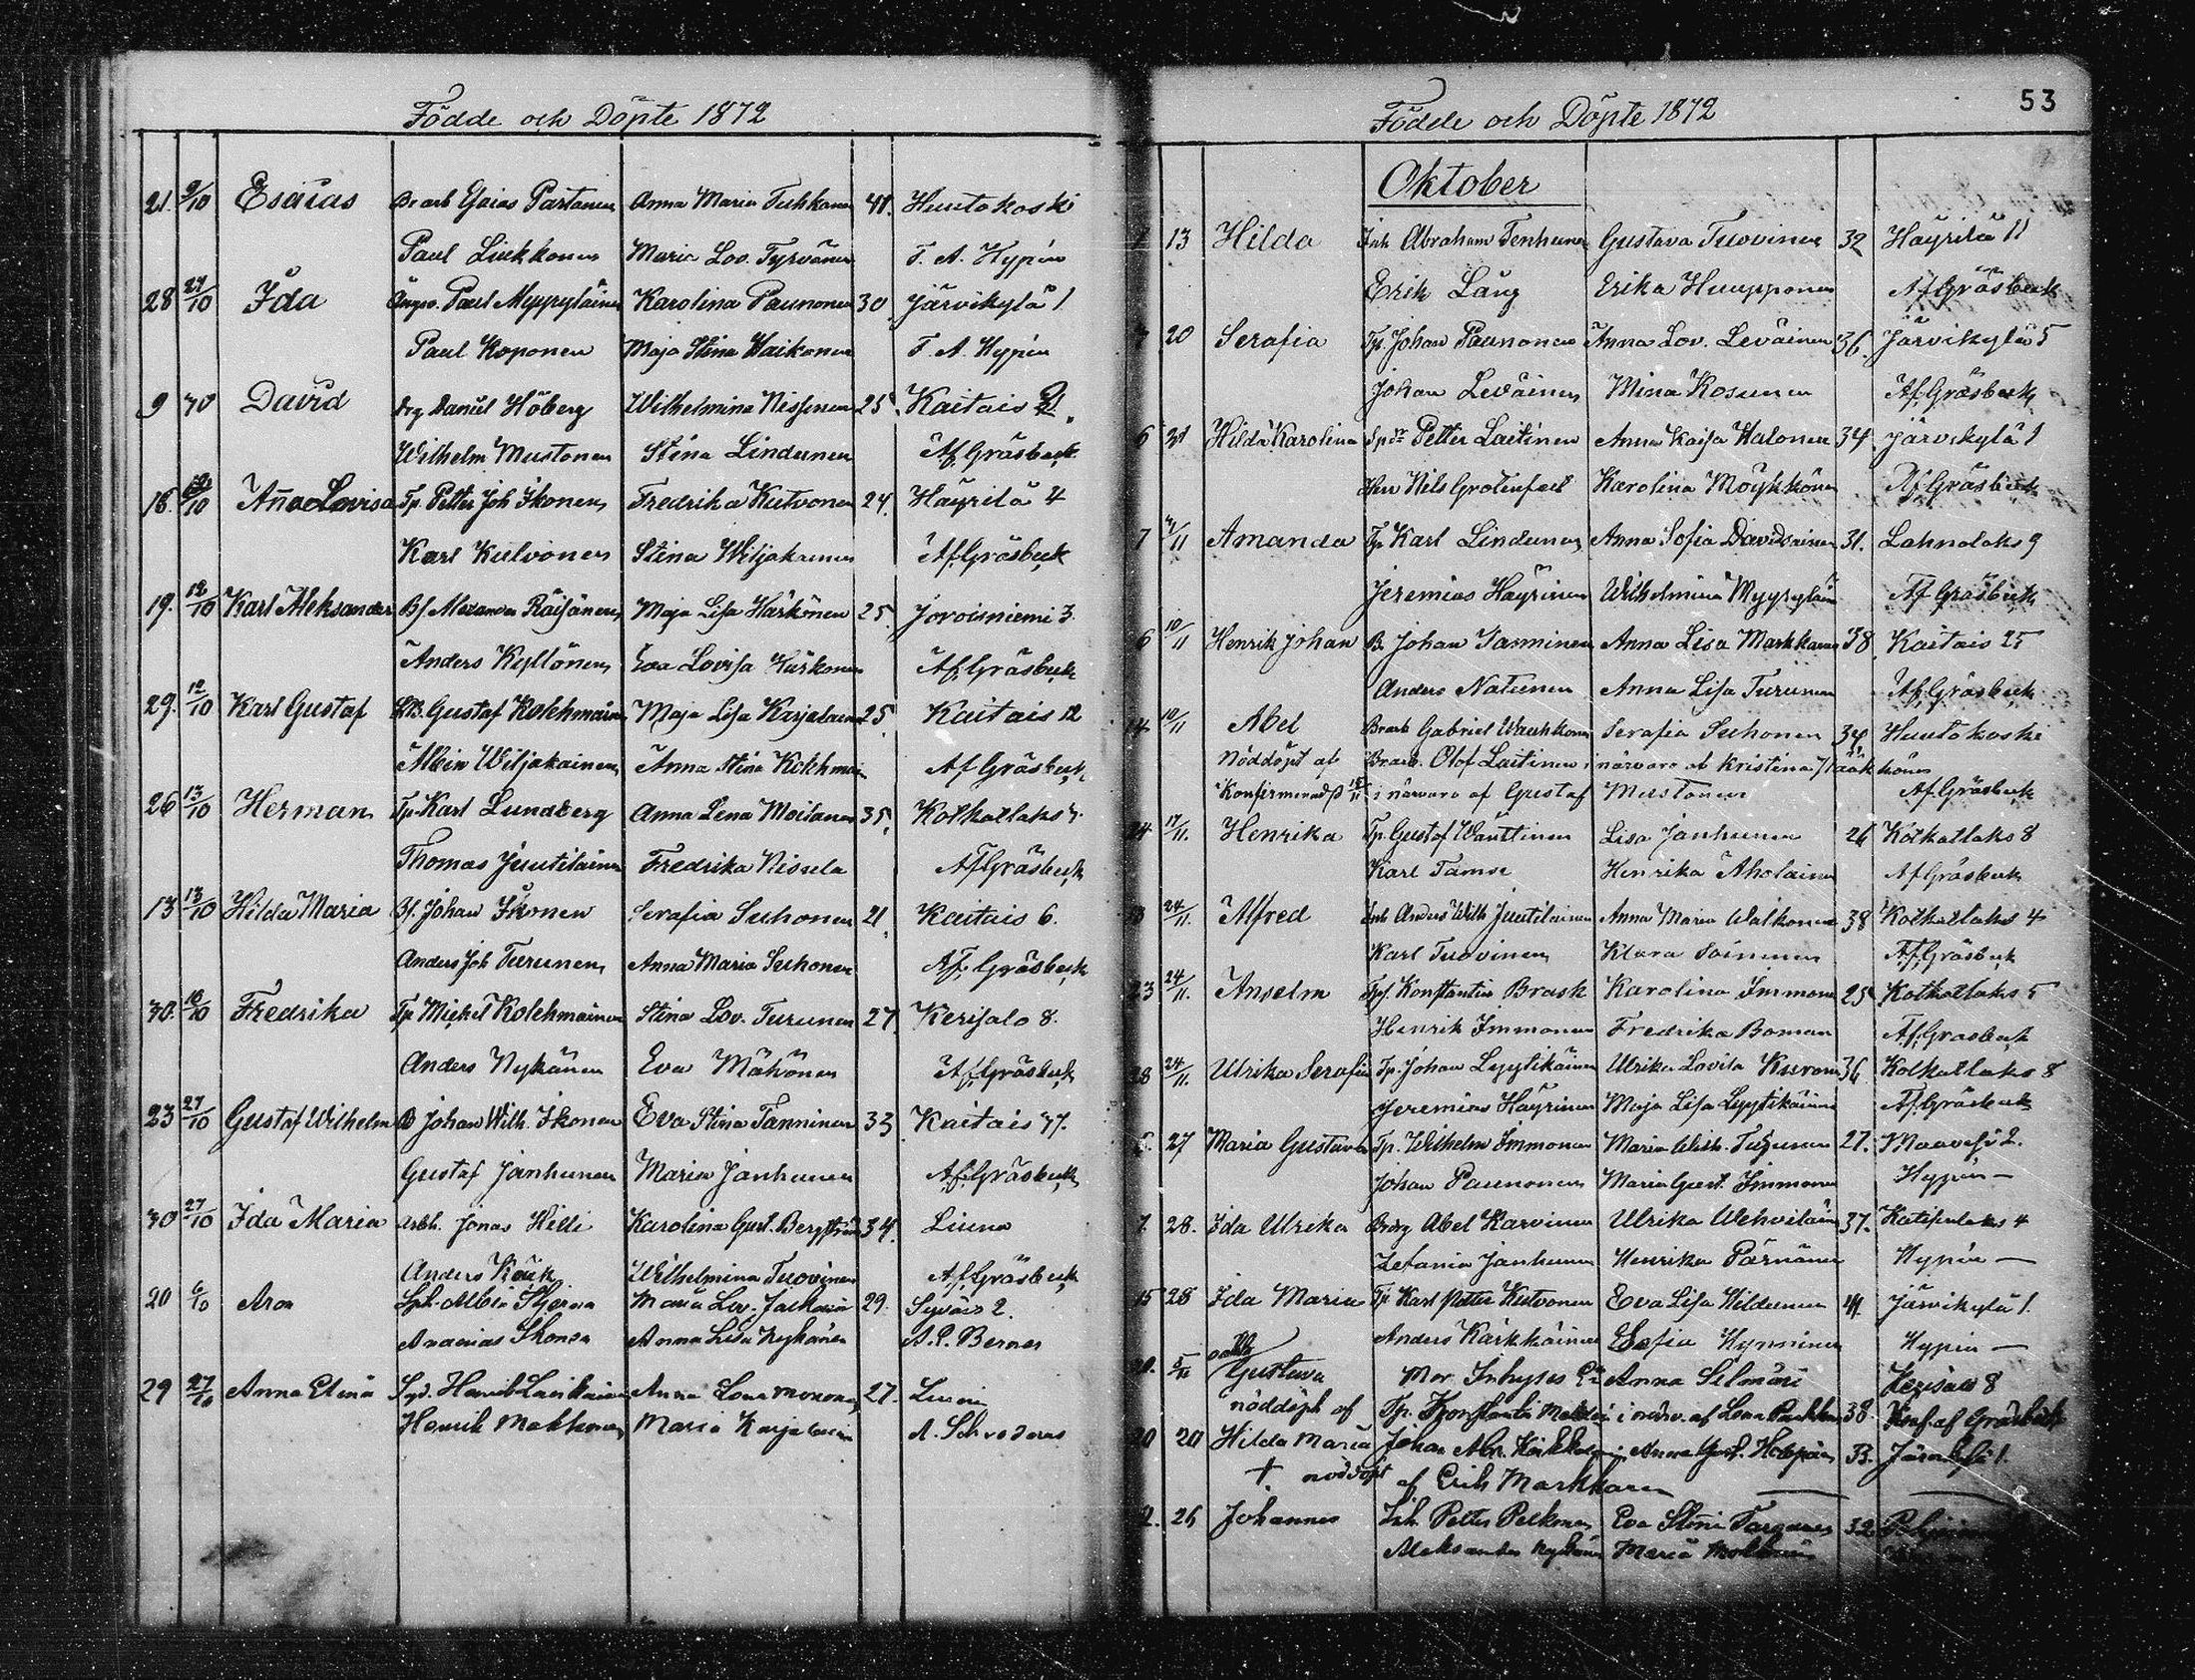 Födde och Döpte 1872
21. 9/10 Esaias Br arb Esaias Partanen Anna Maria Tuhkanen 41. Huutokoski
Paul Liukkonen Maria Lov. Tyrvänen F. A. Hypén
28 27/10 Ida Paul Myyryläinen Karolina Paunonen 30 Järvikylä 1
Paul Koponen Maja Stina Haikonen F. A. Hypén
9 David Drg Daniel Höberg Wilhelmina Nissinen 25. Kaitais
Wilhelm Mustonen Stina Lindunen Af Gräsbeck
18. Anna Lovisa Tp. Petter Joh Ikonen Fredrika Kutvonen 24. Häyrilä 4
Karl Kutvonen Stina Wiljakainen Af Gräsbeck
19. 12/10 Karl Aleksander Bf. Alexander Räisänen Maja Lisa Härkönen 25. Joroisniemi 3.
Anders Kyllönen Eva Lovisa Härkönen Af Gräsbeck
29. 12/10 Karl Gustaf Gustaf Kolehmainen Maja Lisa Karjalainen 25. Kaitais 12
Albin Wiljakainen Anna Stina Kolehmainen Af Gräsbeck
26 13/10 Herman Tp. Karl Lundberg Anna Lena Moilanen 35. Kolkatlaks
Thomas Juutilainen Fredrika Nissela Af Gräsbeck
13 13/10 Hilda Maria Bf. Johan Ikonen Serafia Suhonen 21. Kaitais 6.
Anders Joh Turunen Anna Maria Suhonen Af. Gräsbeck
30. Fredrika Tp Mickel Kolehmainen Stina Lov. Turunen 27 Kerisalo 8.
Anders Nykänen Eva Mähönen Af. Gräsbeck
23 27/10 Gustaf Wilhelm B Johan Wilh. Ikonen Eva Stina Tanninen 33 Kaitais 47.
Gustaf Janhunen Maria Janhunen Af. Gräsbeck
30 27/10 Ida Maria Arbh. Jonas Hilli Karolina Gust. Bergström 34. Liuna
Anders Käuk Wilhelmina Tuovinen Af. Gräsbeck
20 6/10 Aron Albin Stjerna Maria Lov. 29. Syväis 2.
Ananias Ikonen Anna Lisa Nykänen A. P. Berner
29 27/10 Anna Elina Anna Lena Mononen 27.
Henrik Makkonen Maria Karjalainen A. Schroderus
53
Födde och Döpte 1872
Oktober
13 Hilda Inh Abraham Tenhunen Gustava Tuovinen 32 Häyrilä 11
Erik Läng Erika Huupponen Af. Gräsbeck
20 Serafia Tp. Johan Paunonen Anna Lov. Leväinen 36. Järvikylä 5
Johan Leväinen Mina Kosunen Af. Gräsbeck
6 Hilda Karolina Petter Laitinen Anna Kaisa Halonen 34. Järvikylä 1
Herr Nils Grotenfelt Karolina Möykkönen Af. Gräsbeck
7 Amanda Tp Karl Lindunen Anna Sofia Davidsainen 31. Lahnalaks 9
Jeremias Häyrinen Wilhelmina Myyryläin Af Gräsbeck
6 10/11 Henrik Johan B. Johan Tanninen Anna Lisa Markkanen 38 Kaitais 25
Anders Natunen Anna Lisa Turunen Af. Gräsbeck
14 10/11 Abel Br arb Gabriel Wauhkonen Serafia Suhonen 34. Huutokoski
Nöddöpt af Br arb. Olof Laitinen i närvaro af Kristina
Konfirmerad i närvaro af Gustaf Mustonen Af. Gräsbeck
24 17/11. Henrika Tp. Gustaf Wänttinen Lisa Janhunen 26 Kolkatlaks 8
Karl Tamse Henrika Aholainen Af Gräsbeck
24/11. Alfred Inh Anders Wilh Juutilainen Anna Maria Walkonen 38 Kolkatlaks 4
Karl Tuovinen Klara Soininen Af. Gräsbeck
23 24/11. Anselm Konstantin Brask Karolina Immonen 25 Kolkatlaks 5
Henrik Immonen Fredrika Boman Af. Gräsbeck
28 24/11. Ulrika Serafia Tp. Johan Lyytikäinen Ulrika Lovisa 36 Kolkatlaks 8
Jeremias Häyrinen Maja Lisa Lyytikäinen Af. Gräsbeck
27 Maria Gustava Tp. Wilhelm Immonen Maria Wilh. Turunen 27. Maavesi 2.
Johan Paunonen Maria Gust. Immonen Hypén —
7. 28. Ida Ulrika Abel Karvinen Ulrika Wehviläinen 37. Katisalaks 4
Zefania Janhunen Henrika Pärnänen Hypén —
15 28 Ida Maria Tp Karl Petter Kutvonen Eva Lisa Hildunen 41. Järvikylä 1.
Anders Kärkkäinen Sofia Hynninen Hypén —
5/11 oäkta Gustava Mor. Inhyses Anna Silmäri Kerisalo 8
nöddöpt af Tp. Konstantin i närv. af Lena 38. Konf. af Gräsbeck
20 20 Hilda Maria Johan Anna Gust. 33. Järvikylä 1.
† nöddöpt af Erik Markkanen
2. 26 Johannes Inh Petter Pelkonen Eva Stina 32
Aleksander Nykänen Maria